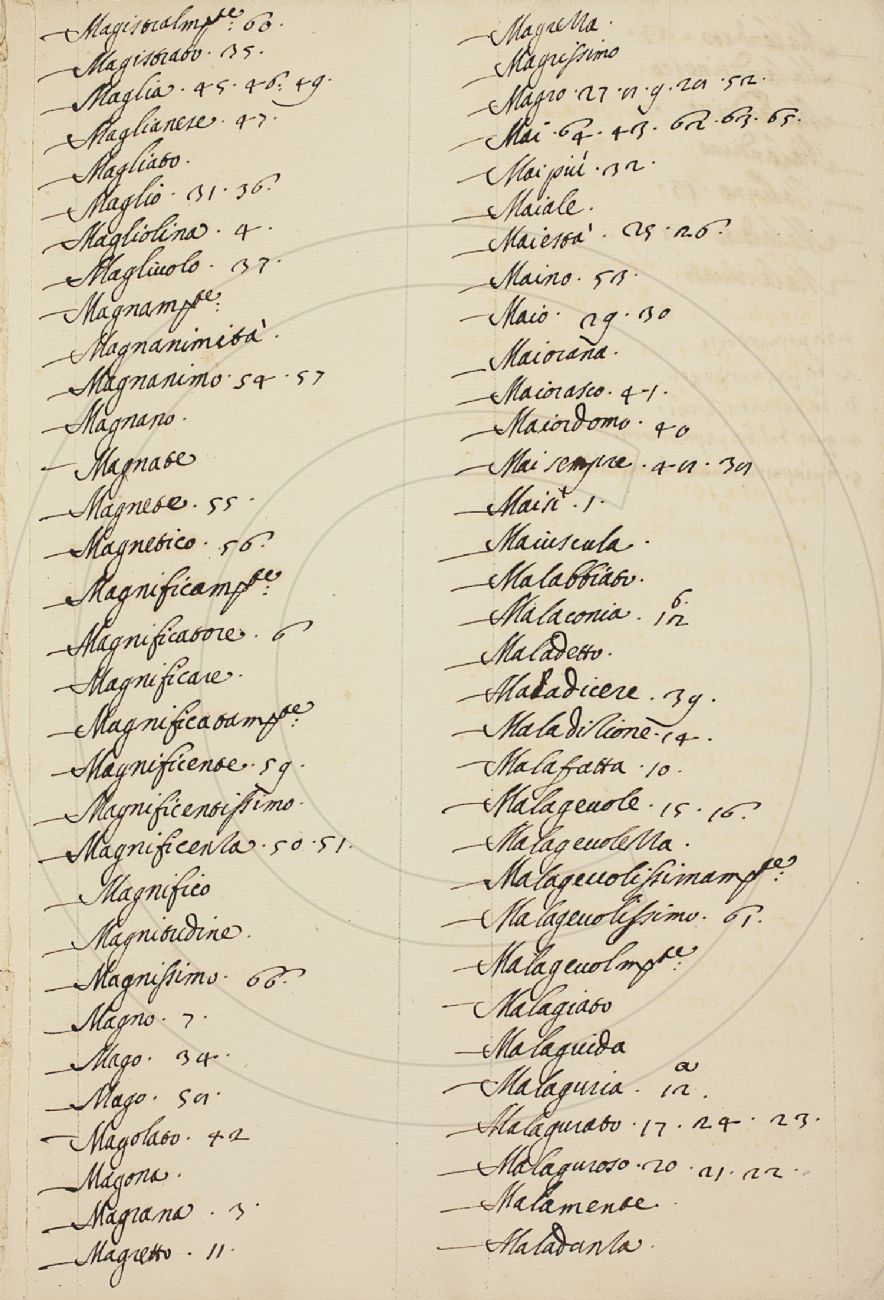 —Magistralmte: 60.
—Magistrato. 35.
—Maglia. 45. 46. 49.
—Maglianese. 47.
—Magliato.
—Maglio. 31. 36.
—Magliolina. 4.
—Magliuolo. 37.
—Magnamte:
—Magnanimità.
—Magnanimo. 54. 57
—Magnano.
—Magnate
—Magnete. 55.
—Magnetico. 56.
—Magnificamte:
—Magnificatore. 6
—Magnificare.
—Magnificatamte:
—Magnificente. 59.
—Magnificentissimo.
—Magnificenza. 50. 51.
—Magnifico
—Magnitudine.
—Magnissimo. 66.
—Magno. 7.
—Mago. 34.
—Mago.
—Magolato. 42
—Magona.
—Magrana. 3.
—Magretto. 11.
—Magrezza.
—Magrissimo
—Magro. 27. 9. 52.
—Mai. 64. 43. 62. 63. 65.
—Mai più. 32.
—Maiale.
—Maiestà. 25. 26.
—Maino. 53.
—Maio. 29. 30
—Maiorana.
—Maiorasco. 41.
—Maiordomo. 40
—Mai sempre.
—Maisì. 1.
—Maiuscula.
—Malabbiato.
—Malaconia. 12 b.
—Maladetto.
—Maladicere. 39.
—Maladizione. 14.
—Malafatta. 10.
—Malageuole. 15. 16.
—Malageuolezza.
—Malageuolissimamte:
—Malageuolissimo. 61.
—Malageuolmte:
—Malagiato
—Malaguida
—Malaguria. 12 a.
—Malagurato. 17. 24. 23.
—Malaguroso. 20. 21. 22.
—Malamente.
—Maladanza.